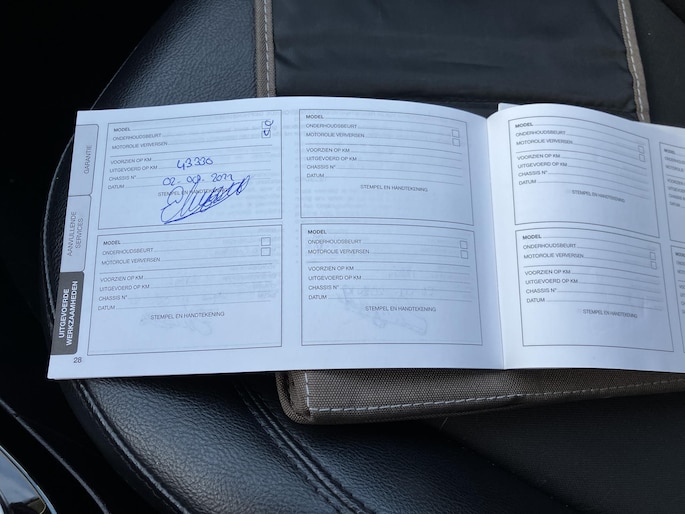 GARANTIE
AANVULLENDE
SERVICES
UITGEVOERDE
WERKZAAMHEDEN
MODEL
ONDERHOUDSBEURT
MOTOROLIE VERVERSEN
VOORZIEN OP KM
UITGEVOERD OP KM 43330
CHASSIS N°
DATUM 02.09.2022
STEMPEL EN HANDTEKENING
MODEL
ONDERHOUDSBEURT
MOTOROLIE VERVERSEN
VOORZIEN OP KM
UITGEVOERD OP KM
CHASSIS N°
DATUM
STEMPEL EN HANDTEKENING
28
MODEL
ONDERHOUDSBEURT
MOTOROLIE VERVERSEN
VOORZIEN OP KM
UITGEVOERD OP KM
CHASSIS N°
DATUM
STEMPEL EN HANDTEKENING
MODEL
ONDERHOUDSBEURT
MOTOROLIE VERVERSEN
VOORZIEN OP KM
UITGEVOERD OP KM
CHASSIS N°
DATUM
STEMPEL EN HANDTEKENING
MODEL
ONDERHOUDSBEURT
MOTOROLIE VERVERSEN
VOORZIEN OP KM
UITGEVOERD OP KM
CHASSIS N°
DATUM
STEMPEL EN HANDTEKENING
MODEL
ONDERHOUDSBEURT
MOTOROLIE VERVERSEN
VOORZIEN OP KM
UITGEVOERD OP KM
CHASSIS N°
DATUM
STEMPEL EN HANDTEKENING